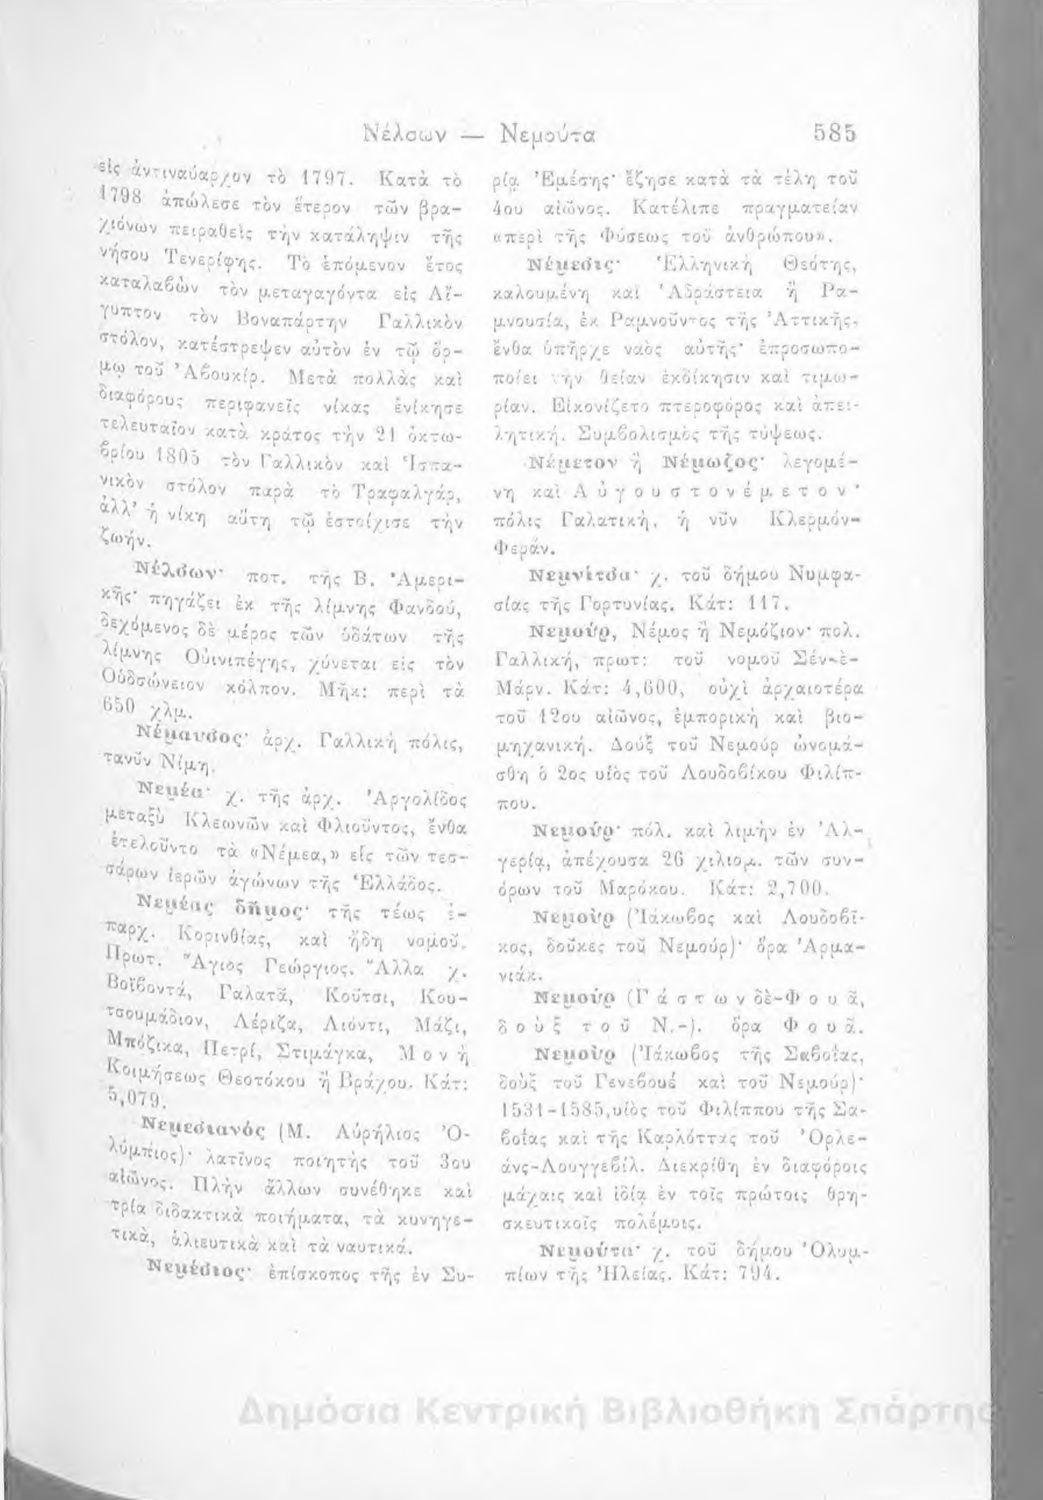 Νέλσων — Νεμούτα 585
εἰς ἀντιναύαρχον τὸ 1797. Κατὰ τὸ
1798 ἀπώλεσε τὸν ἕτερον τῶν βρα-
χιόνων πειραθεὶς τὴν κατάληψιν τῆς
νήσου Τενερίφης. Τὸ ἑπόμενον ἔτος
καταλαβὼν τὸν μεταγαγόντα εἰς Αἴ-
γυπτον τὸν Βοναπάρτην Γαλλικὸν
στόλον, κατέστρεψεν αὐτὸν ἐν τῷ ὅρ-
μῳ τοῦ Ἀβουκίρ. Μετὰ πολλὰς καὶ
διαφόρους περιφανεῖς νίκας ἐνίκησε
τελευταῖον κατὰ κράτος τὴν 21 ὀκτω-
βρίου 1805 τὸν Γαλλικὸν καὶ Ἰσπα-
νικὸν στόλον παρὰ τὸ Τραφαλγάρ,
ἀλλ' ἡ νίκη αὕτη τῷ ἐστοίχισε τὴν
ζωήν.
Νέλσων· ποτ. τῆς Β. Ἀμερι-
κῆς· πηγάζει ἐκ τῆς λίμνης Φανδού,
δεχόμενος δὲ μέρος τῶν ὑδάτων τῆς
λίμνης Οὐινιπέγης, χύνεται εἰς τὸν
Οὑδσώνειον κόλπον. Μῆκ: περὶ τὰ
650 χλμ.
Νέμαυσος· ἀρχ. Γαλλικὴ πόλις,
τανῦν Νίμη.
Νεμέα· χ. τῆς ἀρχ. Ἀργολίδος
μεταξὺ Κλεωνῶν καὶ Φλιοῦντος, ἔνθα
ἐτελοῦντο τὰ «Νέμεα,» εἷς τῶν τεσ-
σάρων ἱερῶν ἀγώνων τῆς Ἑλλάδος.
Νεμέας δῆμος· τῆς τέως ἐ-
παρχ. Κορινθίας, καὶ ἤδη νομοῦ.
Πρωτ. Ἅγιος Γεώργιος. Ἄλλα χ.
Βοϊβοντά, Γαλατᾶ, Κούτσι, Κου-
τσουμάδιον, Λέριζα, Λιόντι, Μάζι,
Μπόζικα, Πετρί, Στιμάγκα, Μονὴ
Κοιμήσεως Θεοτόκου ἢ Βράχου. Κάτ:
5,079.
Νεμεσιανός (Μ. Αὐρήλιος Ὀ-
λύμπιος)· λατῖνος ποιητὴς τοῦ 3ου
αἰῶνος. Πλὴν ἄλλων συνέθηκε καὶ
τρία διδακτικὰ ποιήματα, τὰ κυνηγε-
τικά, ἁλιευτικὰ καὶ τὰ ναυτικά.
Νεμέσιος· ἐπίσκοπος τῆς ἐν Συ-
ρίᾳ Ἐμέσης· ἔζησε κατὰ τὰ τέλη τοῦ
4ου αἰῶνος. Κατέλιπε πραγματείαν
«περὶ τῆς Φύσεως τοῦ ἀνθρώπου».
Νέμεσις· Ἑλληνικὴ Θεότης,
καλουμένη καὶ Ἀδράστεια ἢ Ρα-
μνουσία, ἐκ Ραμνοῦντος τῆς Ἀττικῆς,
ἔνθα ὑπῆρχε ναὸς αὐτῆς· ἐπροσωπο-
ποίει τὴν θείαν ἐκδίκησιν καὶ τιμω-
ρίαν. Εἰκονίζετο πτεροφόρος καὶ ἀπει-
λητική. Συμβολισμὸς τῆς τύψεως.
Νέμετον ἢ Νέμωζος· λεγομέ-
νη καὶ Αὐγουστονέμετον·
πόλις Γαλατική, ἡ νῦν Κλερμόν-
Φεράν.
Νεμνίτσα· χ. τοῦ δήμου Νυμφα-
σίας τῆς Γορτυνίας. Κάτ: 117.
Νεμούρ, Νέμος ἢ Νεμόζιον· πολ.
Γαλλική, πρωτ: τοῦ νομοῦ Σέν-ὲ-
Μάρν. Κάτ: 4,600, οὐχὶ ἀρχαιοτέρα
τοῦ 12ου αἰῶνος, ἐμπορικὴ καὶ βιο-
μηχανική. Δοὺξ τοῦ Νεμοὺρ ὠνομά-
σθη ὁ 2ος υἱὸς τοῦ Λουδοβίκου Φιλίπ-
που.
Νεμούρ· πόλ. καὶ λιμὴν ἐν Ἀλ-
γερίᾳ, ἀπέχουσα 26 χιλιομ. τῶν συν-
όρων τοῦ Μαρόκου. Κάτ: 2,700.
Νεμούρ (Ἰάκωβος καὶ Λουδοβῖ-
κος, δοῦκες τοῦ Νεμούρ)· ὅρα Ἀρμα-
νιάκ.
Νεμούρ (Γάστων δὲ-Φουᾶ,
δοὺξ τοῦ Ν.-). ὅρα Φουᾶ.
Νεμούρ (Ἰάκωβος τῆς Σαβοΐας,
δοὺξ τοῦ Γενεβουὲ καὶ τοῦ Νεμούρ)·
1531-1585, υἱὸς τοῦ Φιλίππου τῆς Σα-
βοΐας καὶ τῆς Καρλόττας τοῦ Ὀρλε-
άνς-Λουγγεβίλ. Διεκρίθη ἐν διαφόροις
μάχαις καὶ ἰδίᾳ ἐν τοῖς πρώτοις θρη-
σκευτικοῖς πολέμοις.
Νεμούτα· χ. τοῦ δήμου Ὀλυμ-
πίων τῆς Ἠλείας. Κάτ: 794.
Δημόσια Κεντρική Βιβλιοθήκη Σπάρτης